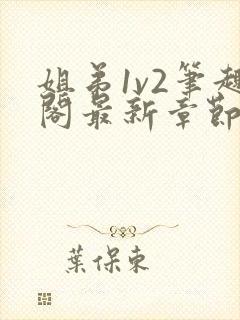 姐弟1v2筆趣
閣最新章節
葉保東